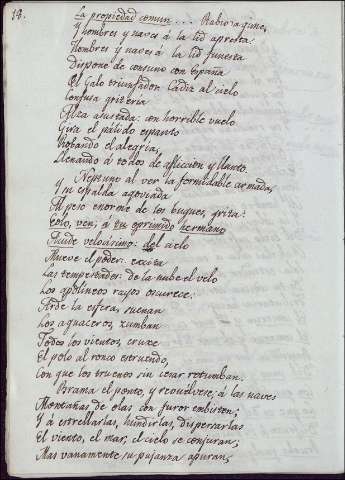 14.
La propiedad comun.... Rabioso gime,
Y hombres y naves á la lid apresta:
Hombres y naves á la lid funesta
Dispone de consuno con España
El Galo triunfador. Cadiz al cielo
Confusa griteria
Alza asustada: con horrible vuelo
Gira el palido espanto
Robando el alegria,
Llenando á todos de afliccion y llanto.
Neptuno al ver la formidable armada,
Y su espalda agoviada
Al peso enorme de los buques, grita:
Eolo, ven; á tu oprimido hermano
Acude velocisimo: del cielo
Mueve el poder: excita
Las tempestades: de la nube el velo
Los apolineos rayos oscurece:
Arde la esfera, suenan
Los aguaceros, zumban
Todos los vientos, cruxe
El polo al ronco estruendo,
Con que los truenos sin cesar retumban.
Brama el ponto, y revuelvese; á las naves
Montañas de olas con furor embisten;
Y á estrellarlas, hundirlas, dispersarlas
El viento, el mar, el cielo se conjuran;
Mas vanamente su pujanza apuran;